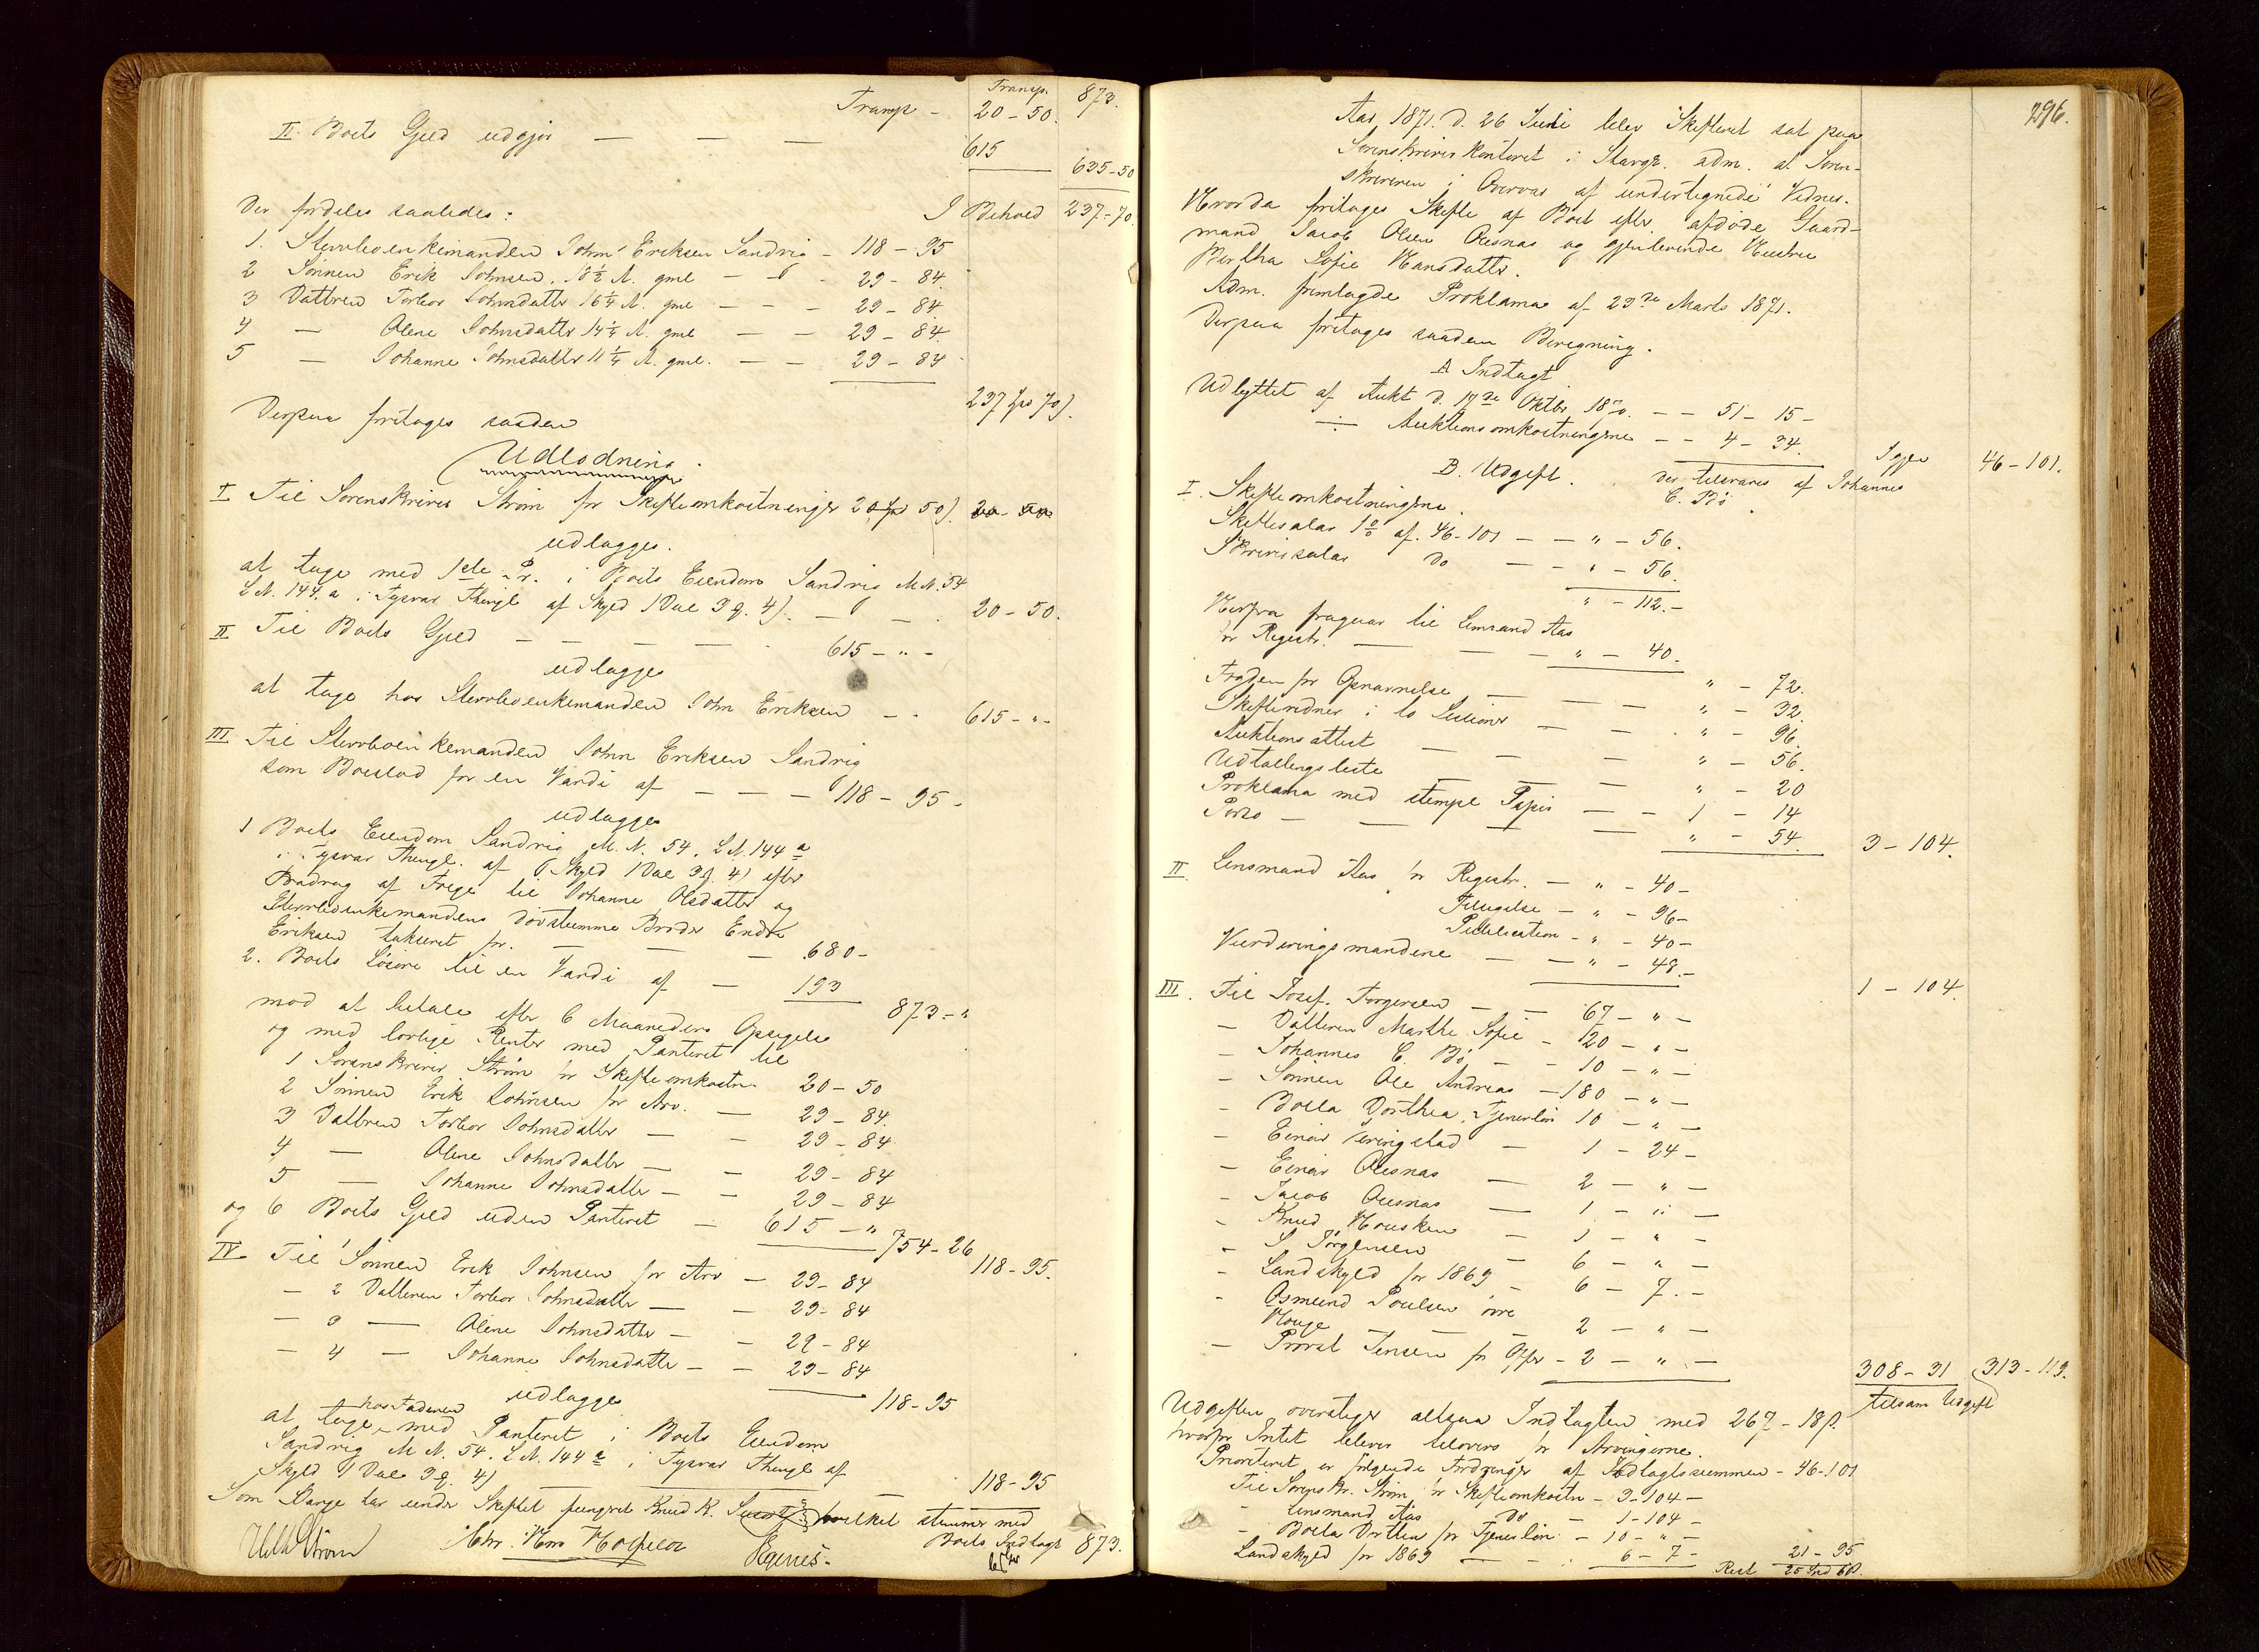 Transp.
Transp - 20 - 50. 873.
II. Boets Gjeld udgjør — — — 615
635-50
I Behold 237-70.
Der fordeles saaledes:
1. Stervboenkemanden John Eriksen Sandvig - 118 - 95
2 Sønnen Erik Johnsen, 18½ A. gml — - 29 - 84.
3 Dattren Torbor Johnsdatter 16¼ A. gml — - 29 - 84.
4 — Olene Johnsdatter 14¼ A. gml — - 29 - 84.
5 — Johanne Johnsdatter 11¼ A. gml. — - 29 - 84
237 Spd 70 s.
Derpaa fortoges saadan
Udlodning.
I Til Sorenskriver Strøm for Skifteomkostninger 20 Spd 50 s. 20 - 50
udlægges.
at tage med 1ste Pr. i Boets Eiendom Sandvig M.N. 54
L.N. 144.a i Tysvær Thingl af Skyld 1 Dal 3 q. 4 s. — - 20 - 50.
II Til Boets Gjeld — — — 615 - " -
udlægges
at tage hos Stervboenkemanden John Eriksen - - 615 - " -
III Til Stervboenkemanden John Eriksen Sandvig
som Boeslod for en Værdi af — — — 118 - 95 -
udlægges
1 Boets Eiendom Sandvig M.N. 54. L.N. 144 a
i Tysvær Thingl. af Skyld 1 Dal 3 q. 4 s efter
Fradrag af Føge til Johanne Olsdatter og
Stervboenkemandens døvstumme Broder Endre
Eriksen takseret for. — — — 680 -
2. Boets Løsøre til en Værdi af — 193
873 - "
mod at betale efter 6 Maaneders Opsigelse
og med lovlige Renter med Panteret til
1 Sorenskriver Strøm for Skifteomkostn. 20 - 50
2 Sønnen Erik Johnsen for Arv. — 29 - 84.
3 Dattren Torbor Johnsdatter — - 29 - 84
4 — Olene Johnsdatter — - 29 - 84
5 — Johanne Johnsdatter — - 29 - 84
og 6 Boets Gjeld uden Panteret — 615 - "
754 - 26
118 - 95.
IV Til 1 Sønnen Erik Johnsen for Arv — 29 - 84
- 2 Datteren Torbor Johnsdatter — - 29 - 84
- 3 — Olene Johnsdatter — - 29 - 84
- 4 — Johanne Johnsdatter — - 29 - 84
118 - 95
udlægges
hos Faderen
at tage med Panteret i Boets Eiendom
Sandvig M N. 54. L.N. 144 a i Tysvær Thingl af
Skyld 1 Dal 3 q. 4 s — — 118 - 95
Som Værge har under Skiftet fungeret Knud K. hvilket stemmer med
Boets Indtægt 873.
Strøm
Egenes.
296.
Aar 1871. d. 26 Juni blev Skifteret sat paa
Sorenskriverkontoret i Stavgr. adm. af Soren-
skriveren i Overvær af undertegnede Vidner.
Hvorda fritoges Skifte af Boet efter afdøde Gaard-
mand Jacob Olsen Aasnæs og gjenlevende Hustru
Bertha Sofie Hansdatter.
Adm. fremlagde Proklama af 23de Marts 1871.
Derpaa fritoges saadan Beregning.
A. Indtægt
Udbyttet af Aukt d. 17de Oktbr 1870. — - 51 - 15 -
÷ Auktionsomkostningerne — - 4 - 34.
Igjen 46 - 101.
der tilsvares af Johannes
E. Bø.
B. Udgift.
I. Skifteomkostningerne.
Skiftesalær 1 % af 46-101 — - " - 56.
Skriversalær Do — - " - 56.
" - 112. -
Herfra fragaar til Lensmand Aas
for Registr. — — " - 40.
" - 72.
Fogden for Opnævnelse — — " - 32.
Skiftevidner i to Sessioner — — " - 96.
Auktionsattest — — — " - 56.
Udtællingsliste — — — " - 20
Proklama med stempl. Papir — - 1 - 14
Porto — — — — " - 54.
3 - 104.
II. Lensmand Aas for Registr. — " - 40 -
Tillysgelse — " - 96 -
Publication - " - 40 -
Vurderingsmændene — — " - 48. -
1 - 104.
III. Til Josef. Torgersen — — 67 - " -
- Datteren Marthe Sofie - 120 - " -
- Johannes E. Bø — - 10 - " -
- Sønnen Ole Andreas — 180 - " -
- Boela Dorthea, Tjenerløn 10 - " -
- Einar — 1 - 24 -
- Einar Aasnæs — 2 - " -
- Jacob Aasnæs — 1 - " -
- Knud Housken — 1 - " -
- S Jørgensen — 6 - " -
- Landskyld for 1869 - 6 - 7. -
- Osmund Poulsen øvre
Houge — — 2 - " -
- Provst Jensen for Offer - 2 - " -
308 - 31 313 - 113.
tilsam Udgift
Udgiften overstiger altsaa Indtægten med 267 - 18 s.
hvorfor Intet bliver tilovers for Arvingerne.
Prioriteret er følgende Fordringer af Indtægtssummen - 46-101
Til Sorenskr. Strøm for Skifteomkostn - 3-104 -
- Lensmand Aas Do — 1-104 -
- Boela Dorthea for Tjenerløn — 10 - " -
Landskyld for 1869 — - 6 - 7 - 21 - 95
Rest 25 Spd 6 s.